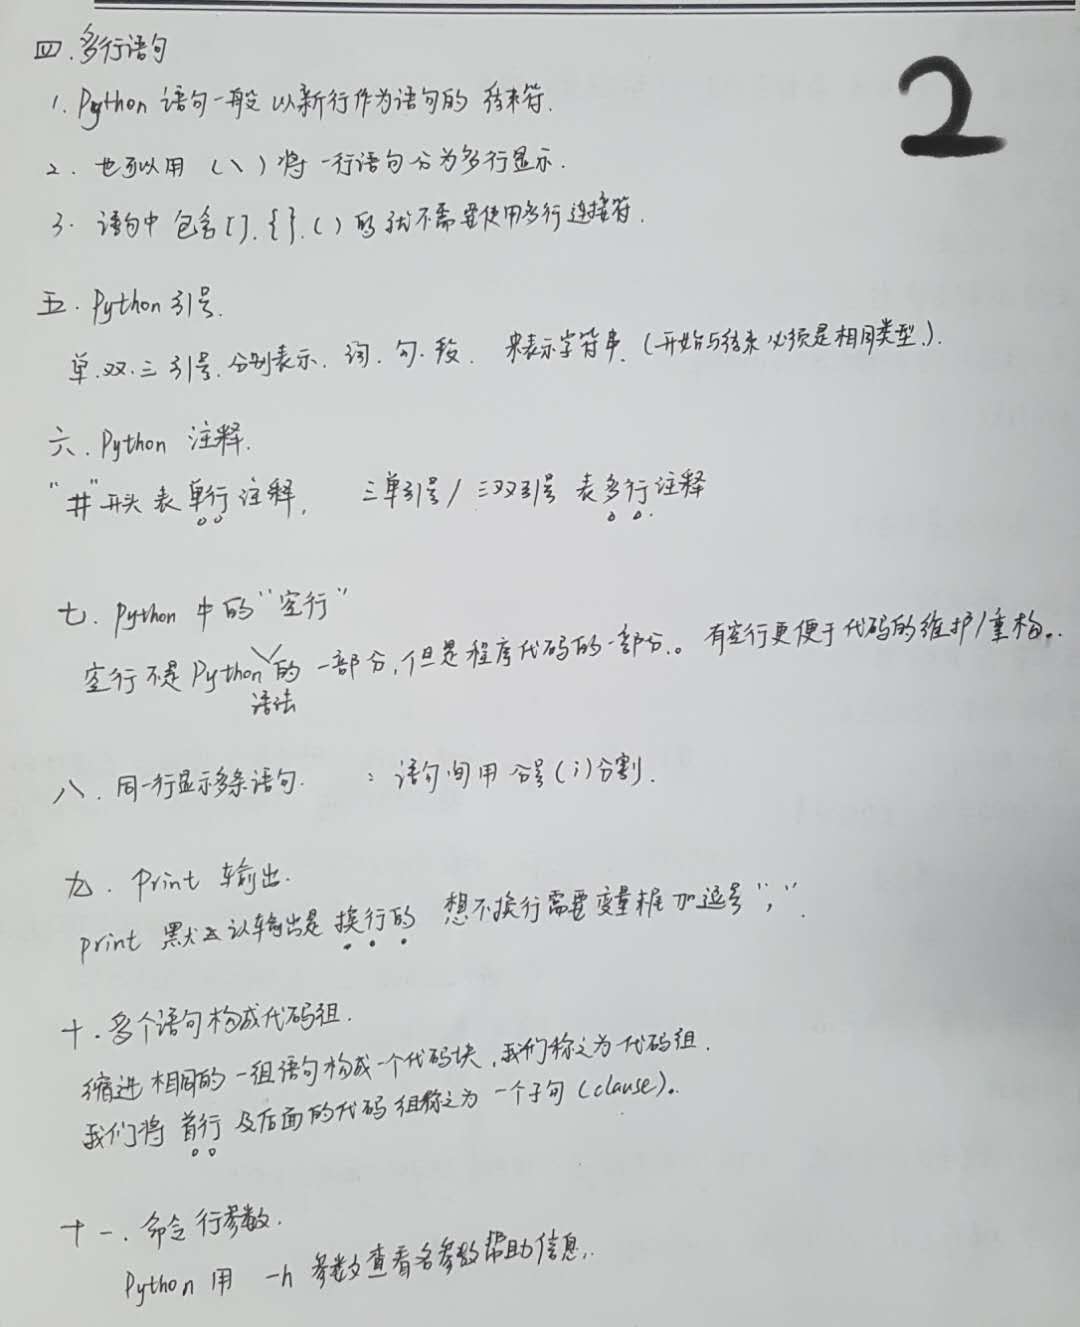 2
四.多行语句
1. Python 语句一般以新行作为语句的结束符.
2. 也可以用 (\) 将一行语句分为多行显示.
3. 语句中包含[].{}.() 的就不需要使用多行连接符.
五. Python引号.
单.双.三引号.分别表示.词.句.段. 来表示字符串.(开始与结束必须是相同类型.).
六. Python 注释.
"#"开头表单行注释, 三单引号/三双引号 表多行注释
七. Python 中的"空行"
空行不是Python语法的一部分,但是程序代码的一部分.。有空行更便于代码的维护/重构..
八. 同一行显示多条语句. : 语句间用分号(;)分割.
九. Print 输出.
print 默认输出是换行的 想不换行需要变量末尾加逗号",".
十.多个语句构成代码组.
缩进相同的一组语句构成一个代码块,我们称之为代码组.
我们将首行及后面的代码组称之为一个子句(clause)。
十一.命令行参数.
Python用 -h 参数查看各参数帮助信息..